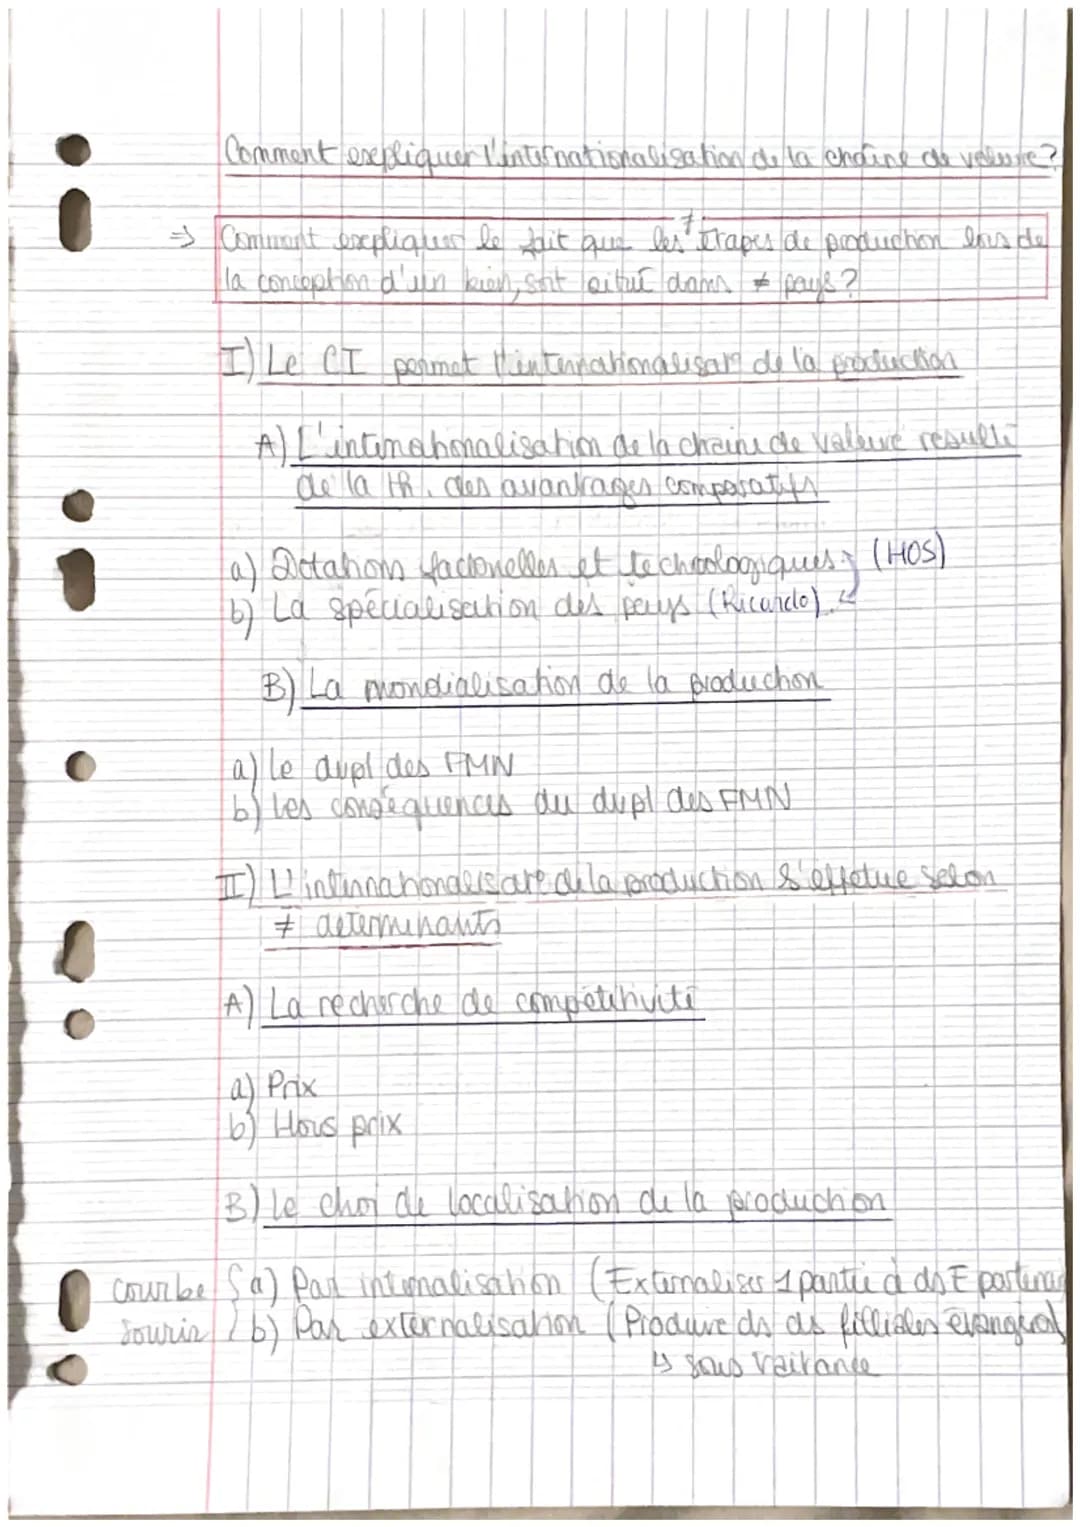 Comment expliquer l'internationalisation de la chaîne de valeure ?
≠
⇒ Comment expliquer le fait que les étapes de production lors de
la conception d'un bien, sont situé dans ≠ pays ?
I) Le CI permet l'internationalisat° de la production
A) L'internationalisation de la chaine de valeure resulte
de la th. des avantages comparatifs
a) Dotations factorielles et technologiques (HOS)
b) La spécialisation des pays (Ricardo)
B) La mondialisation de la production
a) le dvpl des FMN
b) Les conséquences du dvpl des FMN
II) L'internationalisat° de la production s'effetue selon
≠ determinants
A) La recherche de compétitivité
a) Prix
b) Hors prix
B) Le choi de localisation de la production
courbe { a) Par internalisation (Externaliser 1 partie à ds E
sourir { b) Par externalisation (Produire ds ds filliales
↳ sous